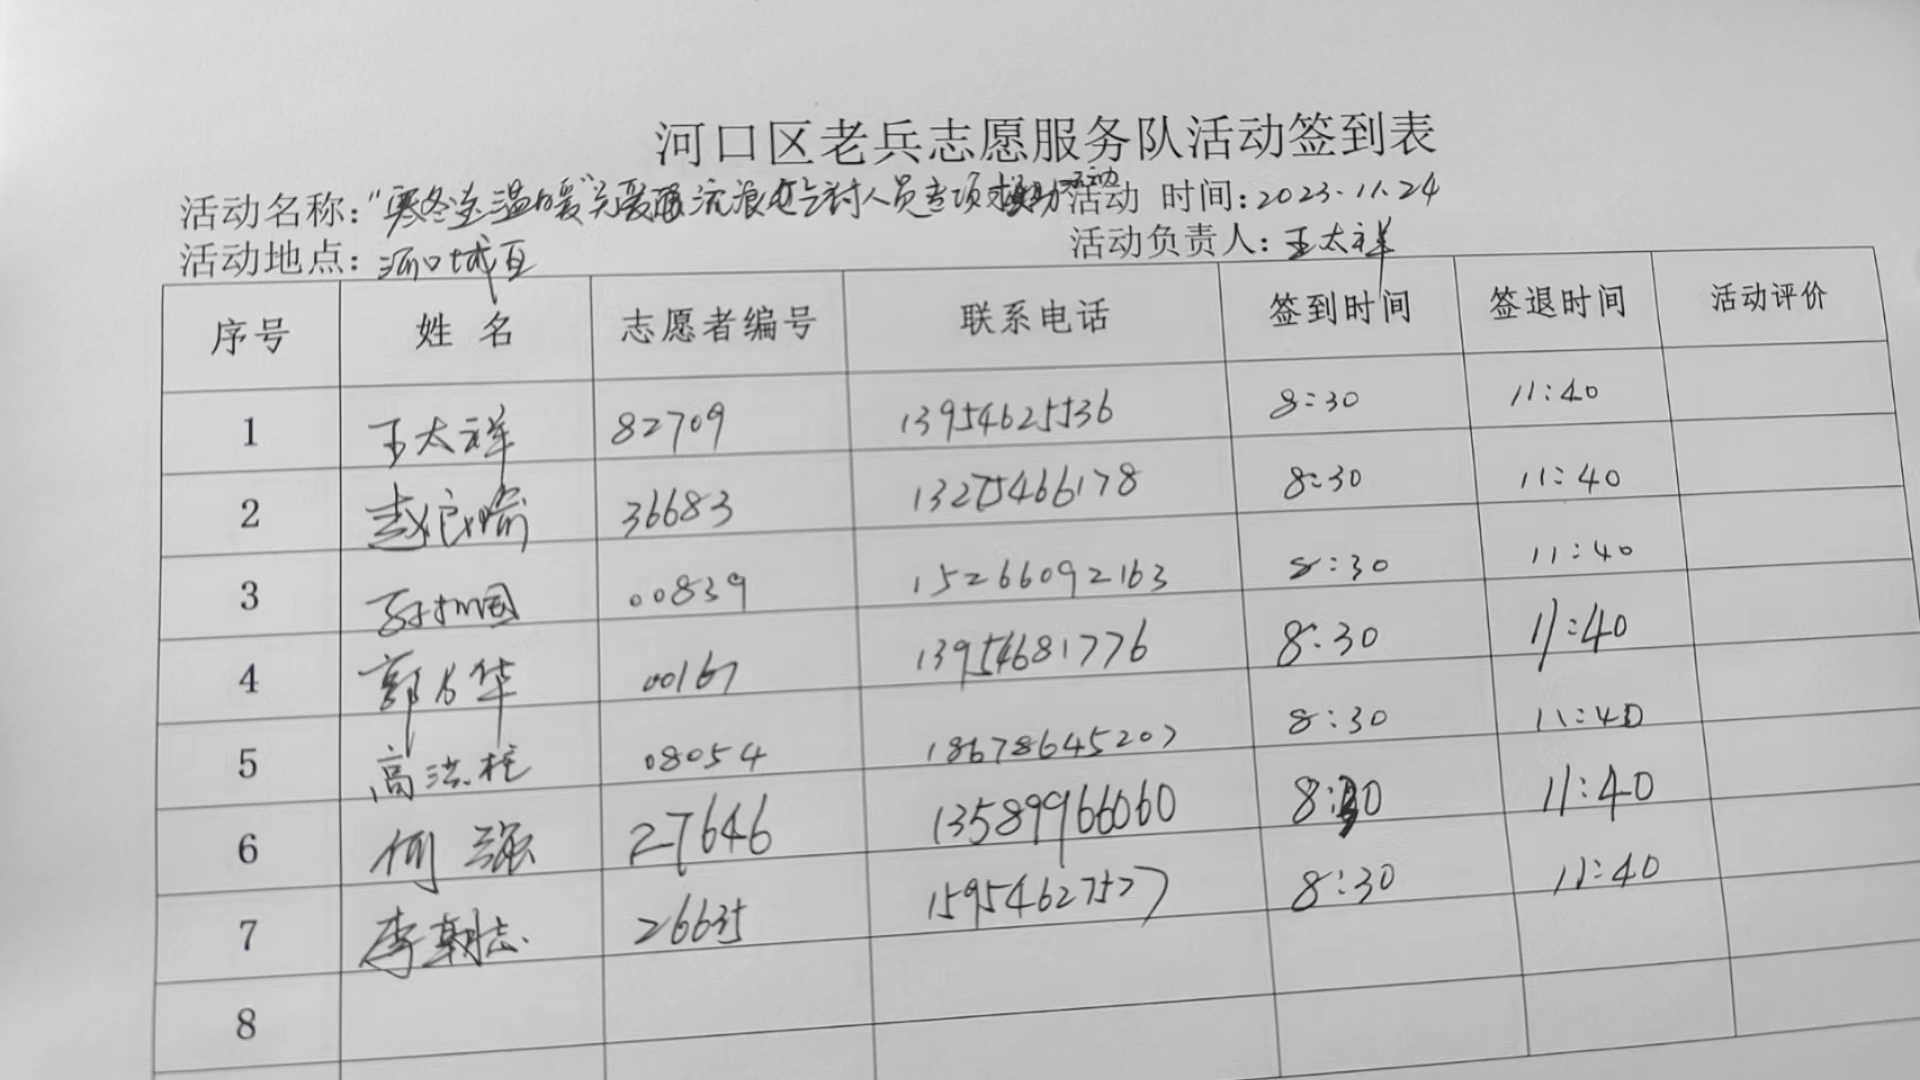 河口区老兵志愿服务队活动签到表
活动名称:“寒冬送温暖”关爱流浪乞讨人员专项救助活动 活动 时间:2023.11.24
活动地点:河口城区 活动负责人:王太祥
序号 姓 名 志愿者编号 联系电话 签到时间 签退时间 活动评价
1 王太祥 82709 13954625536 8:30 11:40
2 赵良喻 36683 13275466178 8:30 11:40
3 国 00839 15266092163 8:30 11:40
4 郭华 00167 13954681776 8:30 11:40
5 高洪柱 08054 18678645207 8:30 11:40
6 何强 27646 13589966060 8:30 11:40
7 李朝志 26635 15954627527 8:30 11:40
8